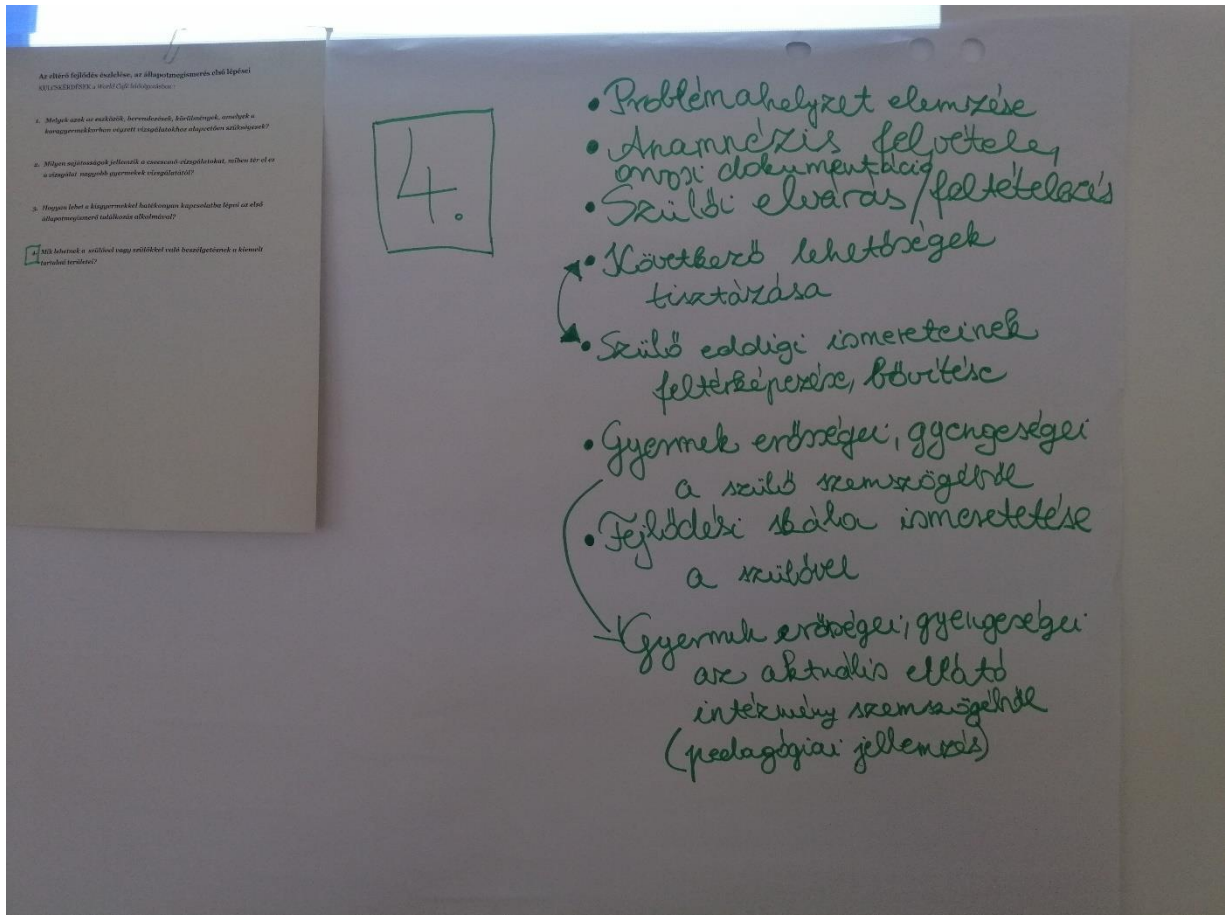 Az eltérő fejlődés észlelése, az állapotmegismerés első lépései
KULCSKÉRDÉSEK a World Café feldolgozáshoz :
1. Melyek azok az eszközök, berendezések, körülmények, amelyek a
koragyermekkorban végzett vizsgálatokhoz alapvetően szükségesek?
2. Milyen sajátosságok jellemzik a csecsemő-vizsgálatokat, miben tér el ez
a vizsgálat nagyobb gyermekek vizsgálatától?
3. Hogyan lehet a kisgyermekkel hatékonyan kapcsolatba lépni az első
állapotmegismerő találkozás alkalmával?
4. Mik lehetnek a szülővel vagy szülőkkel való beszélgetésnek a kiemelt
tartalmi területei?
4.
• Problémahelyzet elemzése
• Anamnézis felvétele,
orvosi dokumentáció
• Szülői elvárás/feltételezés
• Következő lehetőségek
tisztázása
• Szülő eddigi ismereteinek
feltérképezése, bővítése
• Gyermek erősségei, gyengeségei
a szülő szemszögéből
• Fejlődési skála ismeretetése
a szülővel
Gyermek erősségei, gyengeségei
az aktuális ellátó
intézmény szemszögéből
(pedagógiai jellemzés)